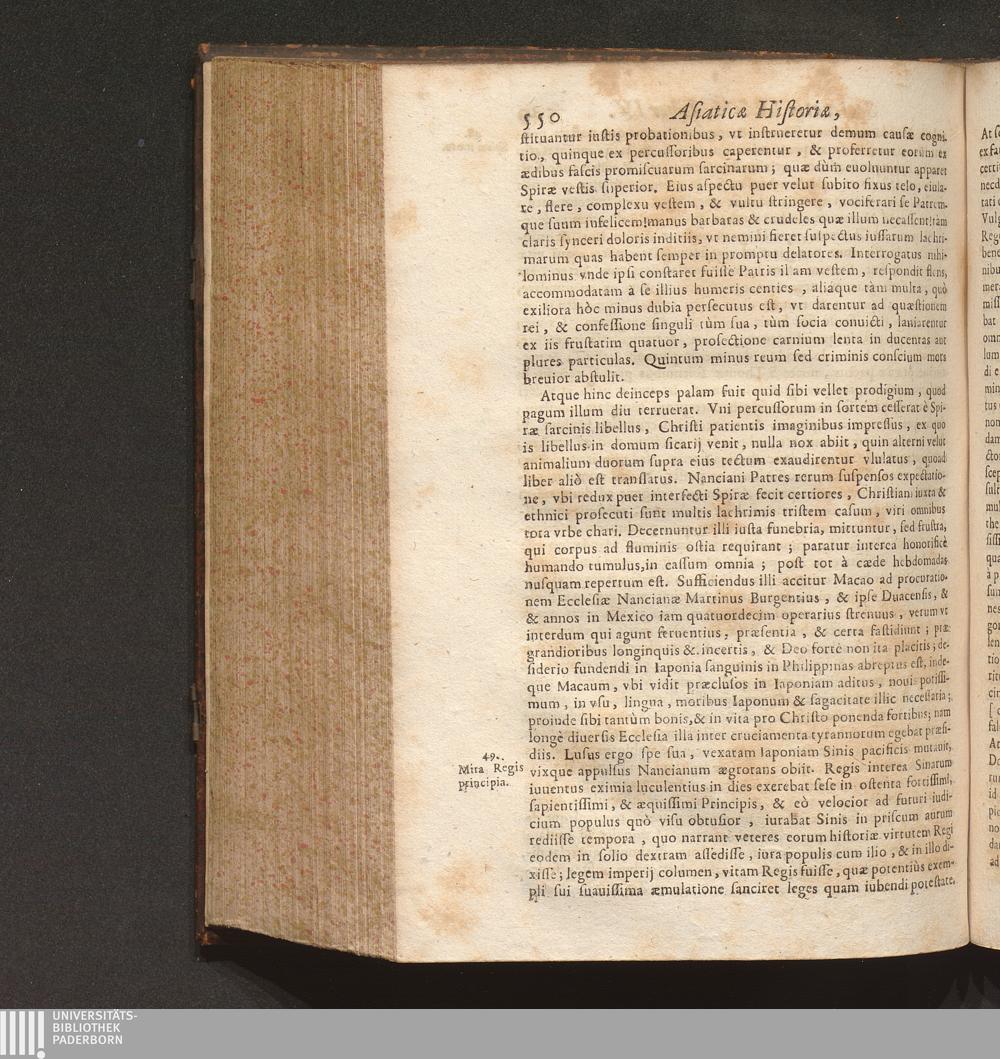 550 Aſiaticæ Hiſtoriæ,
ſtituantur iuſtis probationibus, vt inſtrueretur demum cauſæ cogni-
tio, quinque ex percuſſoribus caperentur, & proferretur eorum ex
ædibus faſcis promiſcuarum ſarcinarum; quæ dùm euoluuntur apparet
Spiræ veſtis ſuperior. Eius aſpectu puer velut ſubito fixus telo, eiula-
re, flere, complexu veſtem, & vultu ſtringere, vociferari ſe Patrem-
que ſuum infelicem! manus barbaras & crudeles quæ illum necaſſent! tàm
claris ſynceri doloris inditiis, vt nemini fieret ſuſpectus iuſſarum lachri-
marum quas habent ſemper in promptu delatores. Interrogatus nihi-
lominus vnde ipſi conſtaret fuiſſe Patris illam veſtem, reſpondit flens,
accommodatam à ſe illius humeris centies, aliaque tàm multa, quò
exiliora hòc minus dubia perſecutus eſt, vt darentur ad quæſtionem
rei, & confeſſione ſinguli tùm ſua, tùm ſocia conuicti, laniarentur
ex iis fruſtatim quatuor, proſectione carnium lenta in ducentas aut
plures particulas. Quintum minus reum ſed criminis conſcium mors
breuior abſtulit.
Atque hinc deinceps palam fuit quid ſibi vellet prodigium, quod
pagum illum diu terruerat. Vni percuſſorum in ſortem ceſſerat è Spi-
ræ ſarcinis libellus, Chriſti patientis imaginibus impreſſus, ex quo
is libellus in domum ſicarij venit, nulla nox abiit, quin alterni velut
animalium duorum ſupra eius tectum exaudirentur vlulatus, quoad
liber aliò eſt tranſlatus. Nanciani Patres rerum ſuſpenſos expectatio-
ne, vbi redux puer interfecti Spiræ fecit certiores, Chriſtiani iuxta &
ethnici proſecuti ſunt multis lachrimis triſtem caſum, viri omnibus
tota vrbe chari. Decernuntur illi iuſta funebria, mittuntur, ſed fruſtra,
qui corpus ad fluminis oſtia requirant; paratur interea honorificè
humando tumulus, in caſſum omnia; poſt tot à cæde hebdomadas
nuſquam repertum eſt. Sufficiendus illi accitur Macao ad procuratio-
nem Eccleſiæ Nancianæ Martinus Burgentius, & ipſe Duacenſis, &
& annos in Mexico iam quatuordecim operarius ſtrenuus, verum vt
interdum qui agunt feruentius, præſentia, & certa faſtidiunt; præ-
grandioribus longinquis & incertis, & Deo fortè non ita placitis; de-
ſiderio fundendi in Iaponia ſanguinis in Philippinas abreptus eſt, inde-
que Macaum, vbi vidit præcluſos in Iaponiam aditus, noui potiſſi-
mum, in vſu, lingua, moribus Iaponum & ſagacitate illic neceſſaria;
proiude ſibi tantùm bonis, & in vita pro Chriſto ponenda fortibus; nam
longè diuerſis Eccleſia illa inter cruciamenta tyrannorum egebat præſi-
diis. Luſus ergo ſpe ſua, vexatam Iaponiam Sinis pacificis mutauit,
vixque appulſus Nancianum ægrotans obiit. Regis interea Sinarum
49.
Mira Regis
principia.
iuuentus eximia luculentius in dies exerebat ſeſe in oſtenta fortiſſimi,
ſapientiſſimi, & æquiſſimi Principis, & eò velocior ad futuri iudi-
cium populus quò viſu obtuſior, iurabat Sinis in priſcum aurum
rediiſſe tempora, quo narrant veteres eorum hiſtoriæ virtutem Regi
eodem in ſolio dextram aſſediſſe, iura populis cum illo, & in illo di-
xiſſe; legem imperij columen, vitam Regis fuiſſe, quæ potentiùs exem-
pli ſui ſuauiſſima æmulatione ſanciret leges quam iubendi poteſtate.
UNIVERSITÄTS-
BIBLIOTHEK
PADERBORN